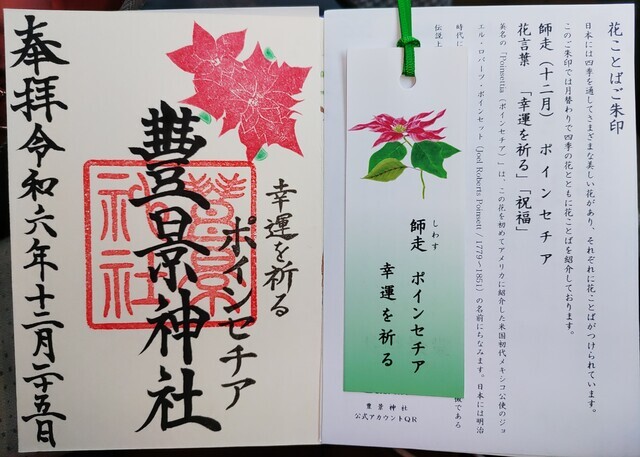 花ことばご朱印
日本には四季を通してさまざまな美しい花があり、それぞれに花ことばがつけられています。
このご朱印では月替わりで四季の花とともに花ことばを紹介しております。
師走(十二月) ポインセチア
花言葉 「幸運を祈る」「祝福」
英名の「Poinsettia(ポインセチア)」は、この花を初めてアメリカに紹介した米国初代メキシコ公使のジョ
エル・ロバーツ・ポインセット(Joel Roberts Poinsett / 1779~1851)の名前にちなみます。日本には明治
時代に
伝説上
徴である
豊景神社
公式アカウントQR
しわす
師走 ポインセチア
幸運を祈る
幸運を祈る
ポインセチア
豐景神社
豐景
神社
奉拝 令和六年十二月二十五日